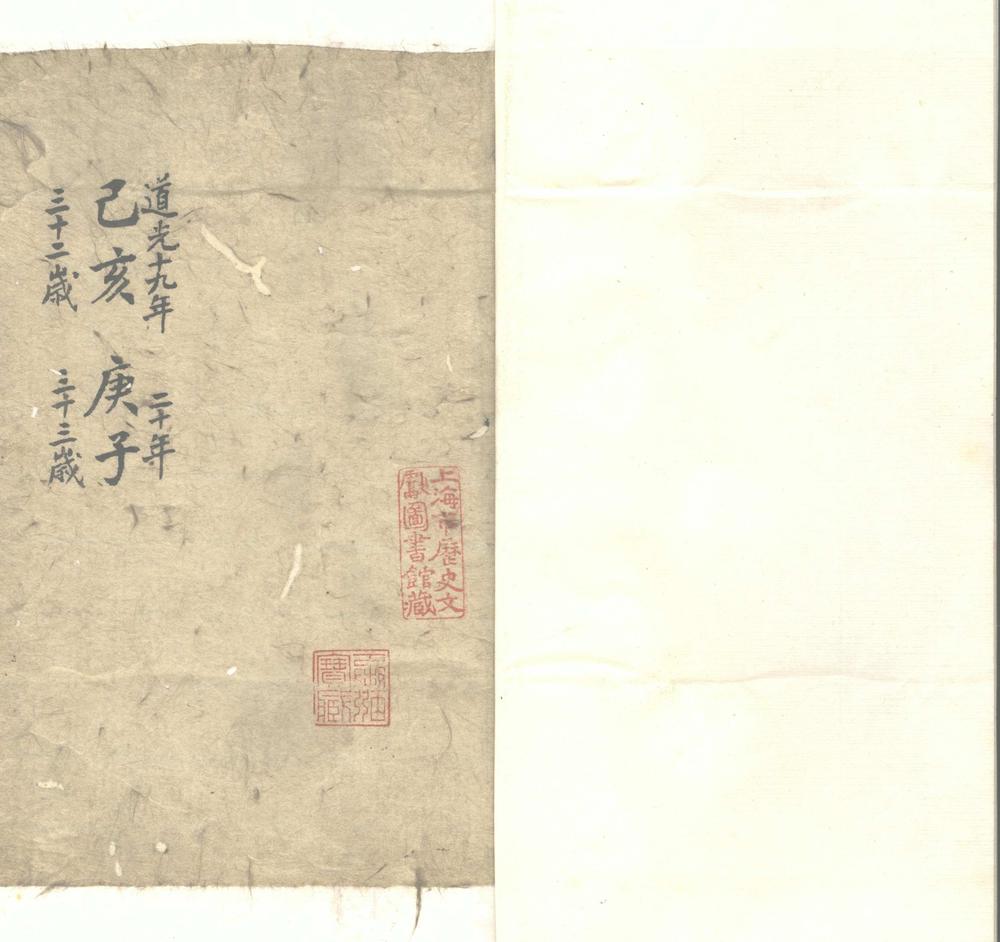 道光十九年 二十年
己亥 庚子
三十二歲 三十三歲
上海市歷史文
獻圖書館藏
寶藏